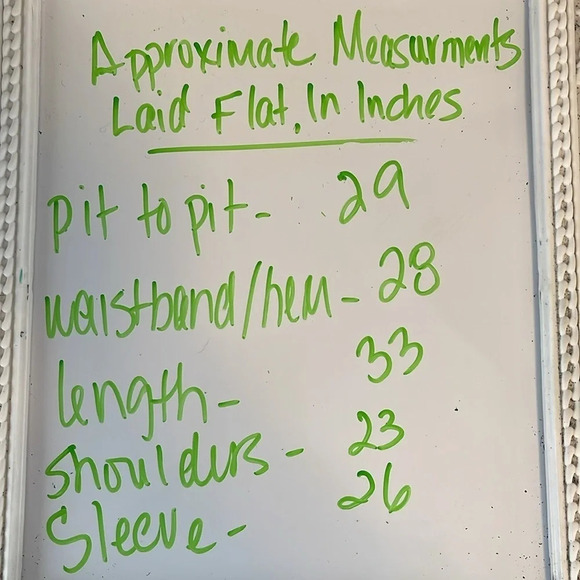 Approximate Measurments
Laid Flat, In Inches
pit to pit- 29
waistband/hem - 28
length- 33
shoulders - 23
Sleeve- 26